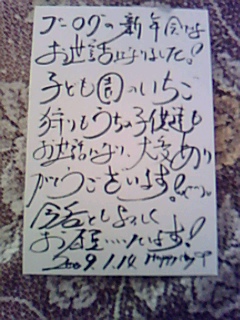 ブログの新年会は
お世話になりました。!
子ども園のいちご
狩りもうちの子供達も
お世話になり、大変あり
がとうございます。!
今年もよろしく
お願いいたします!
2009.1.14